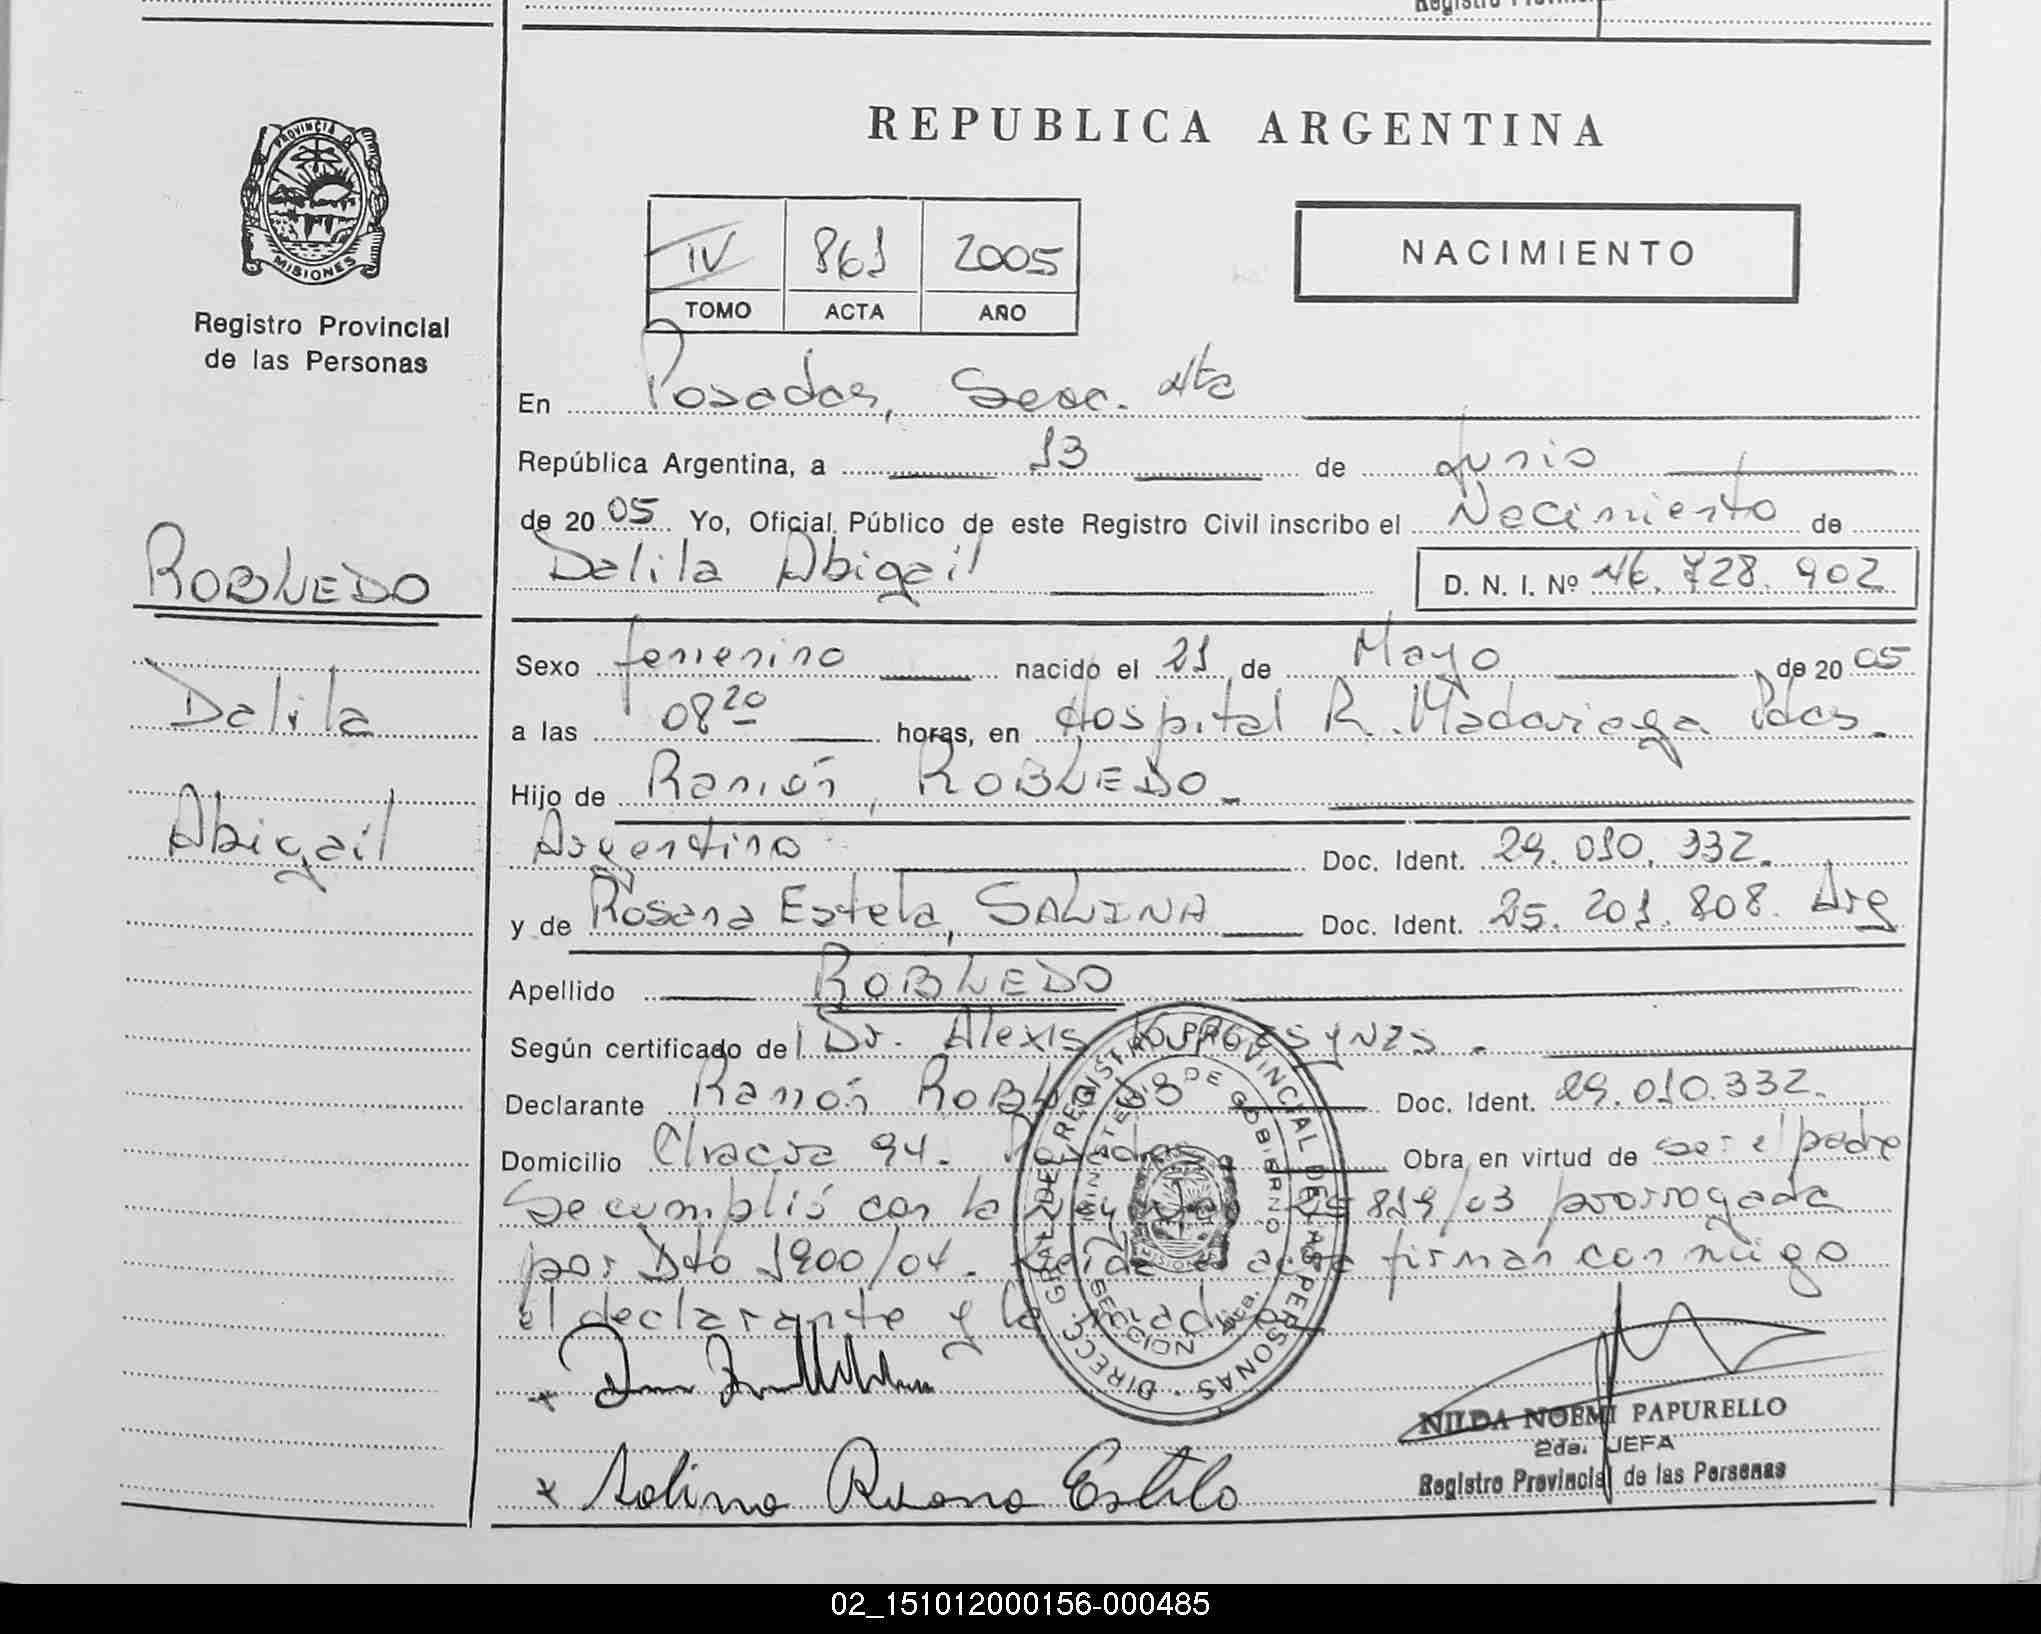 REPUBLICA ARGENTINA
PROVINCIA DE MISIONES
Registro Provincial
de las Personas
IV 861 2005
TOMO ACTA AÑO
NACIMIENTO
En Posadas, Secc. 4ta
República Argentina, a 13 de Junio
de 2005 Yo, Oficial Público de este Registro Civil inscribo el Nacimiento de
Dalila Abigail D. N. I. Nº 46.728.902
ROBLEDO
Dalila
Abigail
Sexo femenino nacido el 21 de Mayo de 2005
a las 08 20 horas, en Hospital R. Madariaga Pdas.
Hijo de Ramón, ROBLEDO.
Argentino Doc. Ident. 29.010.332.
y de Rosana Estela, SALINA Doc. Ident. 25.201.808. Arg
Apellido ROBLEDO
Según certificado del Dr. Alexis
Declarante Ramón Doc. Ident. 29.010.332.
Domicilio Chacra 94. Posadas Obra en virtud de ser el padre
Se cumplió con la Ley 25819/03 prorrogada
por Dto 1900/04. Leída el acta firman con migo
el declarante y la madre
DIRECC. GRAL. DEL REGISTRO PROVINCIAL DE LAS PERSONAS
MINISTERIO DE GOBIERNO
SECCION 4ta.
Salina Rosana Estela
NILDA NOEMI PAPURELLO
2da. JEFA
Registro Provincial de las Personas
02_151012000156-000485